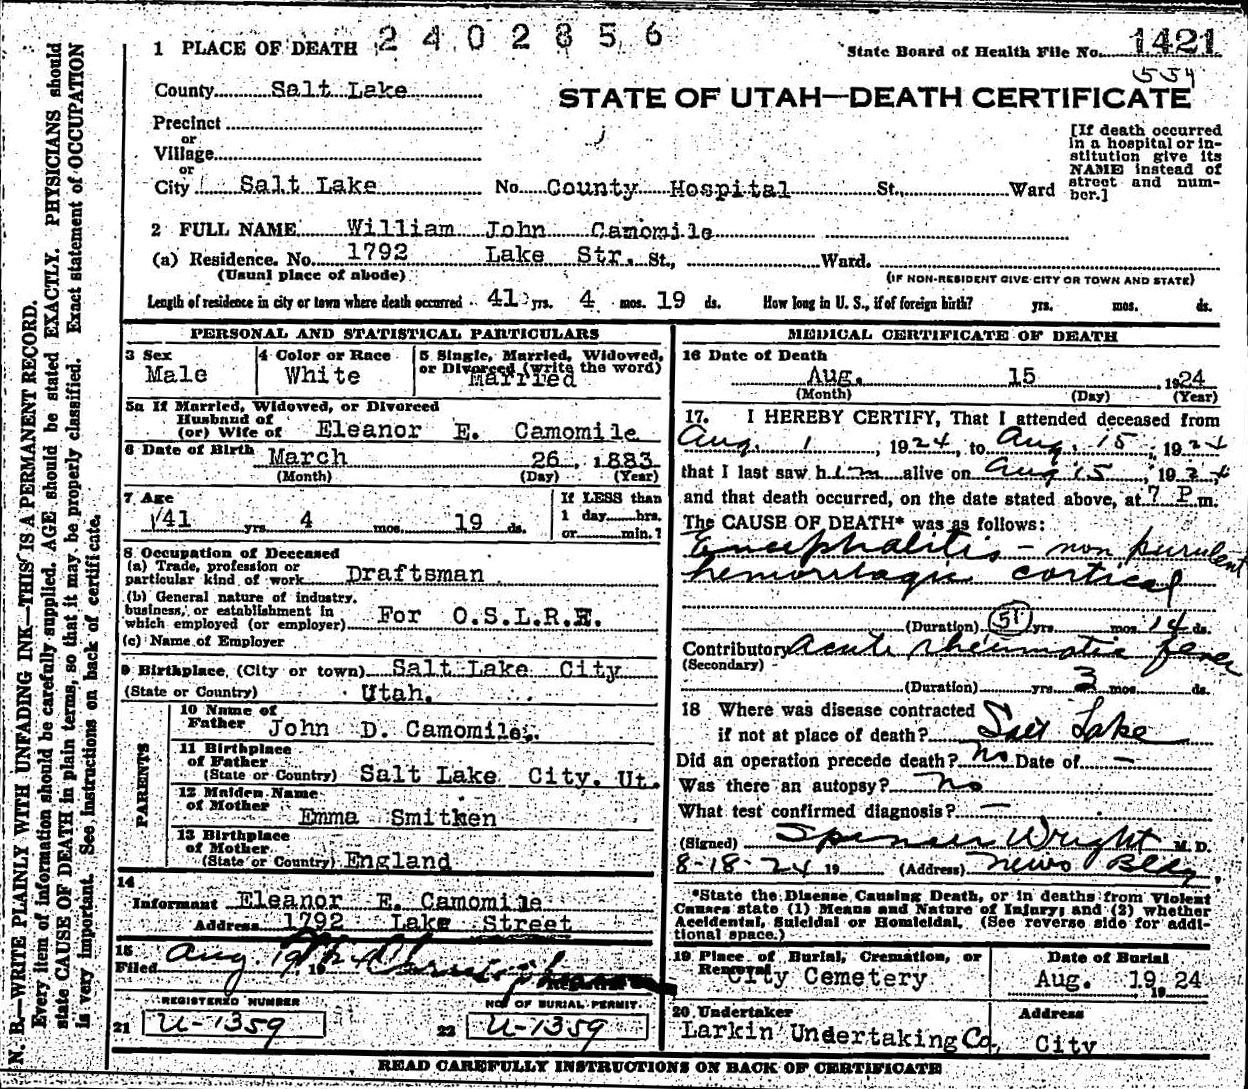 1 PLACE OF DEATH 2402656
State Board of Health File No. 1421
County Salt Lake
STATE OF UTAH—DEATH CERTIFICATE
Precinct
or
Village
or
City Salt Lake No. County Hospital St., Ward
[If death occurred in a hospital or in-
stitution give its
NAME instead of
street and num-
ber.]
2 FULL NAME William John Camomile
(a) Residence. No. 1792 Lake Str. St., Ward.
(Usual place of abode) (IF NON-RESIDENT GIVE CITY OR TOWN AND STATE)
Length of residence in city or town where death occurred 41 yrs. 4 mos. 19 ds. How long in U. S., if of foreign birth? yrs. mos. ds.
PERSONAL AND STATISTICAL PARTICULARS
3 Sex
Male
4 Color or Race
White
5 Single, Married, Widowed,
or Divorced (write the word)
Married
5a If Married, Widowed, or Divorced
Husband of
(or) Wife of Eleanor E. Camomile
6 Date of Birth March 26, 1883
(Month) (Day) (Year)
7 Age
41 yrs. 4 mos. 19 ds.
If LESS than
1 day hrs.
or min.?
8 Occupation of Deceased
(a) Trade, profession or
particular kind of work Draftsman
(b) General nature of industry,
business, or establishment in
which employed (or employer) For O.S.L.R.R.
(c) Name of Employer
9 Birthplace (City or town) Salt Lake City
(State or Country) Utah.
PARENTS
10 Name of
Father John D. Camomile.
11 Birthplace
of Father
(State or Country) Salt Lake City. Ut.
12 Maiden Name
of Mother Emma Smitken
13 Birthplace
of Mother
(State or Country) England
14
Informant Eleanor E. Camomile
Address 1792 Lake Street
15
Filed Aug. 19
REGISTERED NUMBER
21 U-1359
NO. OF BURIAL PERMIT
22 U-1359
MEDICAL CERTIFICATE OF DEATH
16 Date of Death
Aug. 15, 1924
(Month) (Day) (Year)
17. I HEREBY CERTIFY, That I attended deceased from
Aug. 1, 1924, to Aug. 15, 1924
that I last saw him alive on Aug 15, 1924
and that death occurred, on the date stated above, at 7 P m.
The CAUSE OF DEATH* was as follows:
Encephalitis - non purulent
hemorrhagic cortical
(Duration) 51 yrs. mos. 14 ds.
Contributory Acute rheumatic fever
(Secondary)
(Duration) yrs. 3 mos. ds.
18 Where was disease contracted
if not at place of death? Salt Lake
Did an operation precede death? No Date of —
Was there an autopsy? No
What test confirmed diagnosis? —
(Signed) Spencer Wright M. D.
8-18-24 19 (Address) News Bldg.
*State the Disease Causing Death, or in deaths from Violent
Causes state (1) Means and Nature of Injury; and (2) whether
Accidental, Suicidal or Homicidal. (See reverse side for addi-
tional space.)
19 Place of Burial, Cremation, or
Removal
City Cemetery
Date of Burial
Aug. 19, 1924
20 Undertaker
Larkin Undertaking Co,
Address
City
READ CAREFULLY INSTRUCTIONS ON BACK OF CERTIFICATE
N. B.—WRITE PLAINLY WITH UNFADING INK—THIS IS A PERMANENT RECORD.
Every item of information should be carefully supplied. AGE should be stated EXACTLY. PHYSICIANS should
state CAUSE OF DEATH in plain terms, so that it may be properly classified. Exact statement of OCCUPATION
is very important. See instructions on back of certificate.